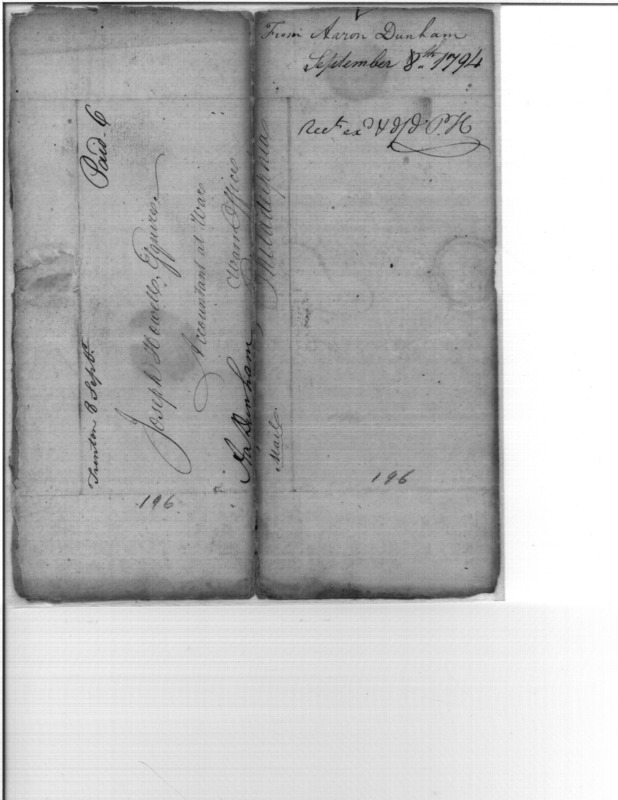 From Aaron Dunham
September 8th. 1794
Rect. exd. & d/d. P. H
Paid 6
Trenton 8 Septr.
Joseph Howell, Esquire.
Accountant at War
War Office
Philadelphia
Dunham
Mail
196
196